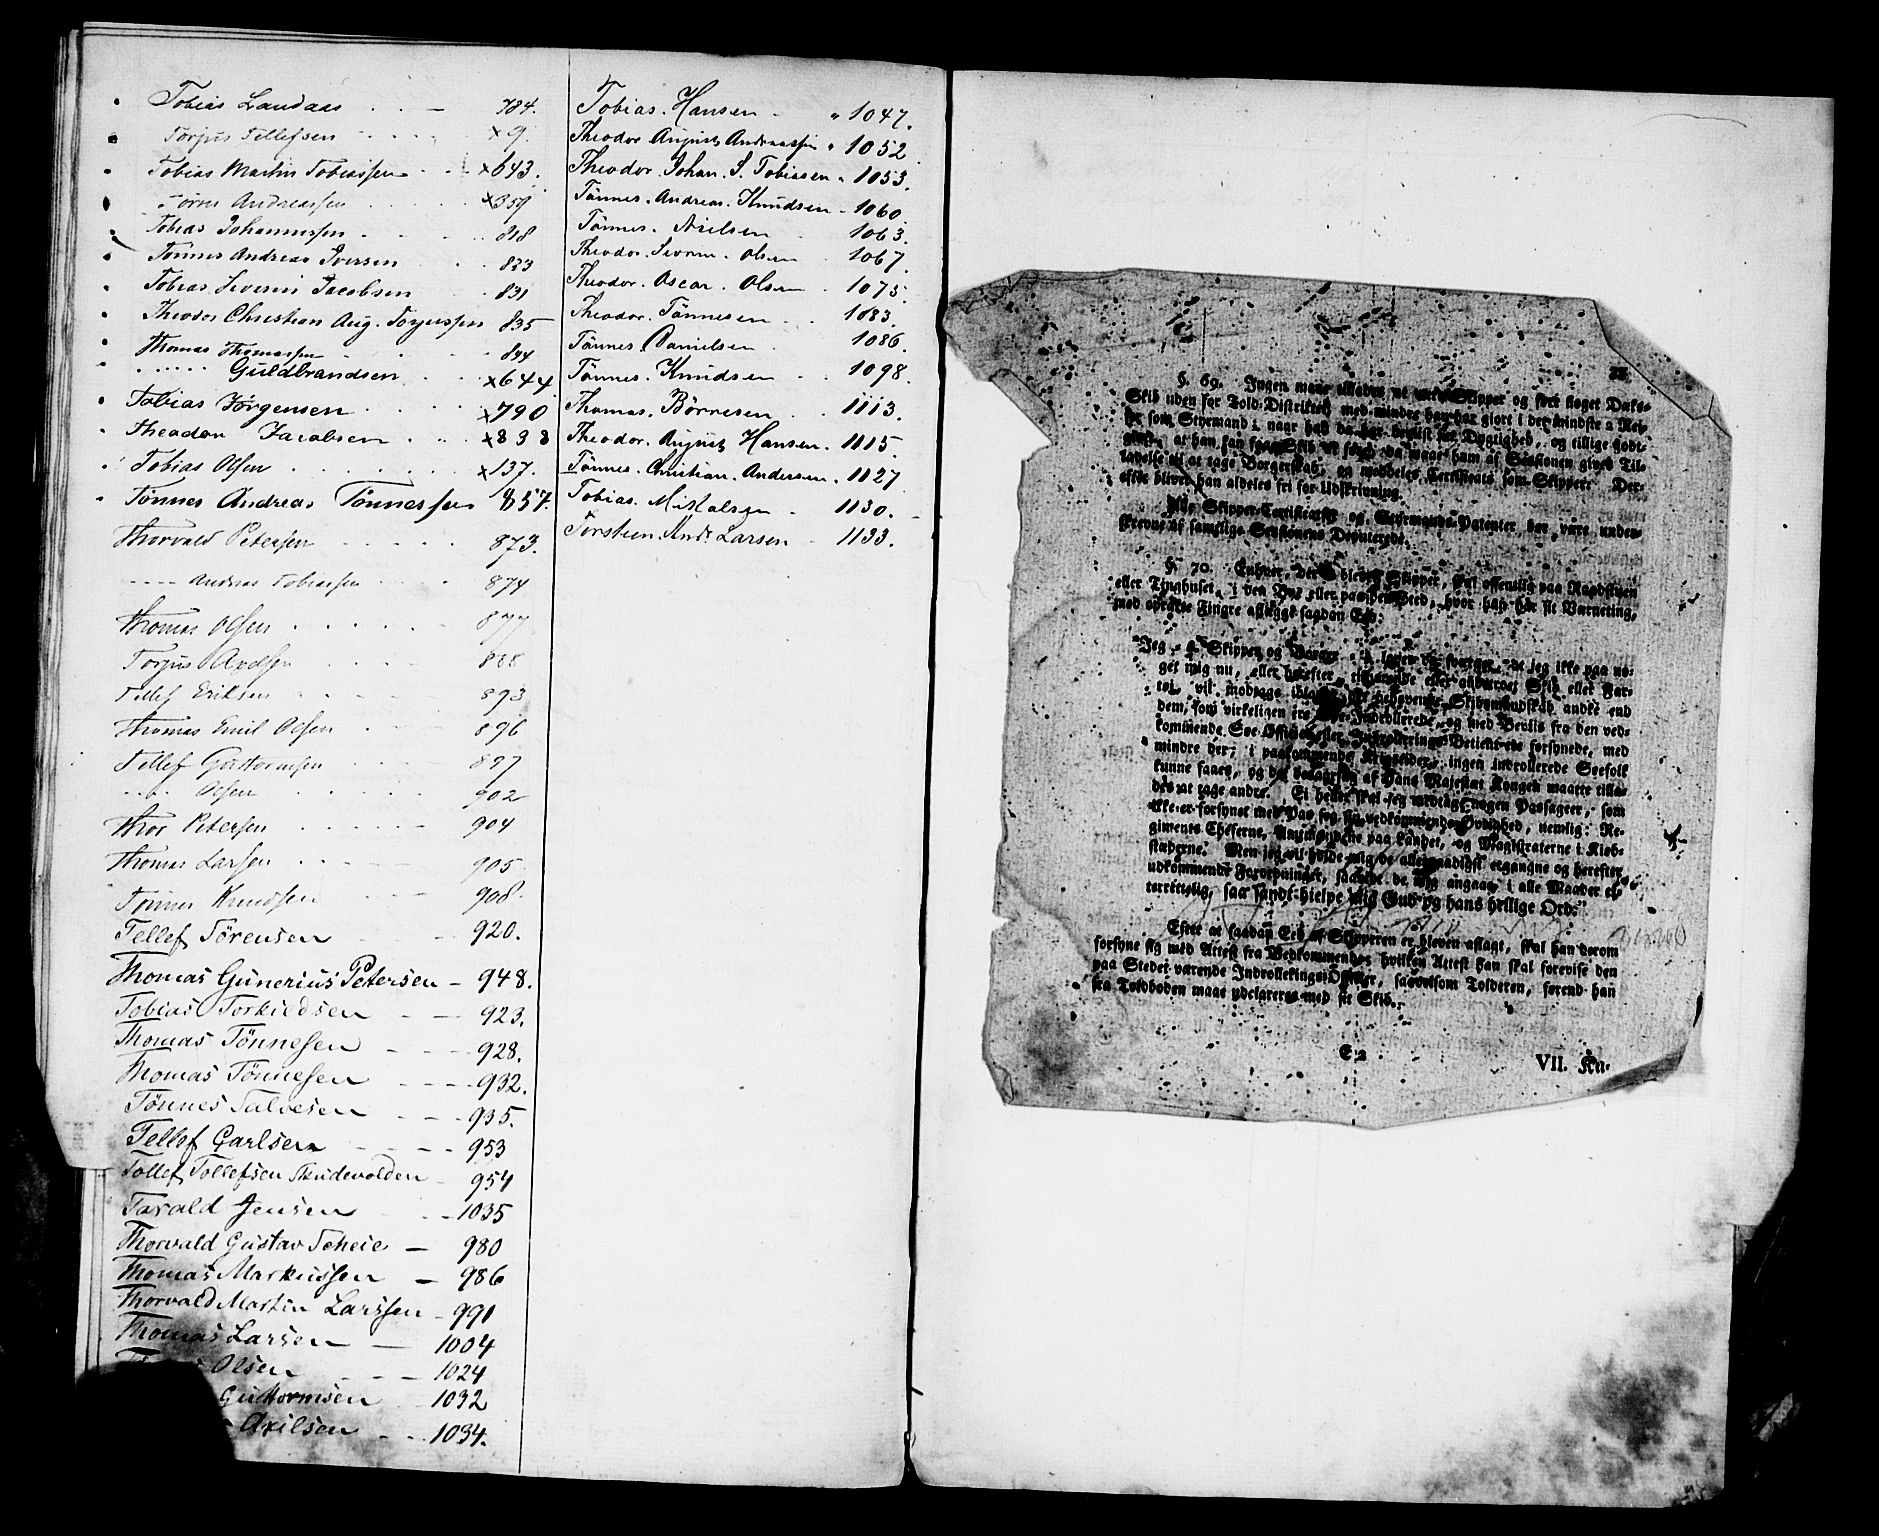 Tobias Landaas . . — 784.
Torjus Tellefsen . . . . ×9.
Tobias Martin Tobiassen . . ×643.
Andreassen . . . . . ×359
Tobias Johannessen . . . 818
Tönnes Andreas Iversen . . 823
Tobias Severin Jacobsen . . 831
Theodor Christian Aug. Torjussen 835
Thomas Thomassen . . . 844
. . . . . . Guldbrandsen . . ×644
Tobias Jörgensen . . . . ×790
Theodor Jacobsen . . . ×838
Tobias Olsen . . . . . . . ×137.
Tönnes Andreas Tönnessen 857.
Thorvald Petersen . . . . . 873.
- - - - Andreas Tobiassen . . . 874
Thomas Olsen . . . . . . 877
Torjus Axelsen . . . . . 888
Tellef Eriksen . . . . . 893
Thomas Emil Olsen . . . . 896
Tellef Guttormsen . . . . 897
. . . . Olsen . . . . . 902
Thor Petersen . . . . . 904
Thomas Larsen . . . . . 905
Tönnes Knudsen . . . . 908.
Tellef Sörensen - - - 920.
Thomas Gunerius Petersen – 948.
Tobias Torkildsen - - - 923.
Thomas Tönnesen - - - - 928.
Thomas Tönnesen - - - - 932.
Tönnes Salvesen - - - - 935.
Tellef Carlsen - - - - 953
Tollef Tollefsen - 954
Tarald Jensen - - - 1035
Thorvald Gustav Scheie – 980
Thomas Markussen – 986
Thorvald Martin Larssen - 991
Thomas Larsen — 1004
Olsen - - - 1024
Guttormsen - - 1032
Axilsen - - - 1034.
Tobias. Hansen - „ 1047.
Theodor August Andreassen „ 1052
Theodor. Johan. S. Tobiasen „ 1053.
Tönnes. Andreas. Knudsen - 1060.
Tönnes. Nielsen . 1063.
Theodor. Severin. Olsen . 1067.
Theodor. Oscar. Olsen . 1075.
Theodor. Tönnesen . . 1083.
Tönnes. Danielsen . 1086.
Tönnes. Knudsen . . 1098.
Thomas. Börresen . . 1113.
Theodor. August Hansen . 1115.
Tönnes. Christian. Andersen . 1127
Tobias. Mikalsen - 1130.
Torstein. And. Larsen - 1133.
§. 69. Ingen maae tillades at være Skipper og føre noget Dansk
Skib uden for Told-Distriktet, med mindre han har giort i det mindste 2 Rei-
ser som Styrmand; naar han da har beviist sin Dygtighed, og tillige godt-
giort, at han kan faae Skib at føre, da maae ham af Sessionen gives Til-
ladelse til at tage Borgerskab, og meddeles Certificats som Skipper. Der-
efter bliver han aldeles fri for Udskrivning.
Alle Skipper-Certificater og Styrmands-Patenter bør være under-
skrevne af samtlige Sessionens Deputerede.
§. 70. Enhver, der er bleven Skipper, skal offentlig paa Raadstuen
eller Tinghuset, i den Bye eller paa det Sted, hvor han har sit Værneting,
med oprakte Fingre aflægge saadan Eed:
Jeg, Skipper og Borger lover og sværger, at jeg ikke paa no-
get mig nu, eller herefter, tilhørende eller anbetroet Skib eller Far-
tøi, vil modtage Skibsmandskab andre end
dem, som virkeligen ere Søe-Indrollerede, og med Beviis fra den ved-
kommende Søe-Officier eller Indrollerings-Betient ere forsynede, med
mindre der, i paakommende ingen indrollerede Søefolk
kunne faaes, og det derfor af Hans Majestæt Kongen maatte tilla-
des at tage andre. Ei heller skal jeg modtage nogen Passageer, som
ikke er forsynet med Pas fra sin vedkommende Øvrighed, nemlig: Re-
giments Cheferne, Amtmændene paa Landet, og Magistraterne i Kiøb-
stæderne. Men jeg vil holde mig de allernaadigst ergangne og herefter
udkommende Forordninger, saavidt de mig angaaer, i alle Maader ef-
terrettelig, saa sandt hjelpe mig Gud og hans hellige Ord.”
Efter at saadan Eed af Skipperen er bleven aflagt, skal han derom
forsyne sig med Attest fra Vedkommende, hvilken Attest han skal forevise den
paa Stedet værende Indrollerings-Officier, saavelsom Tolderen, førend han
fra Toldboden maae udclareres med sit Skib.
E 2
VII. Ka-